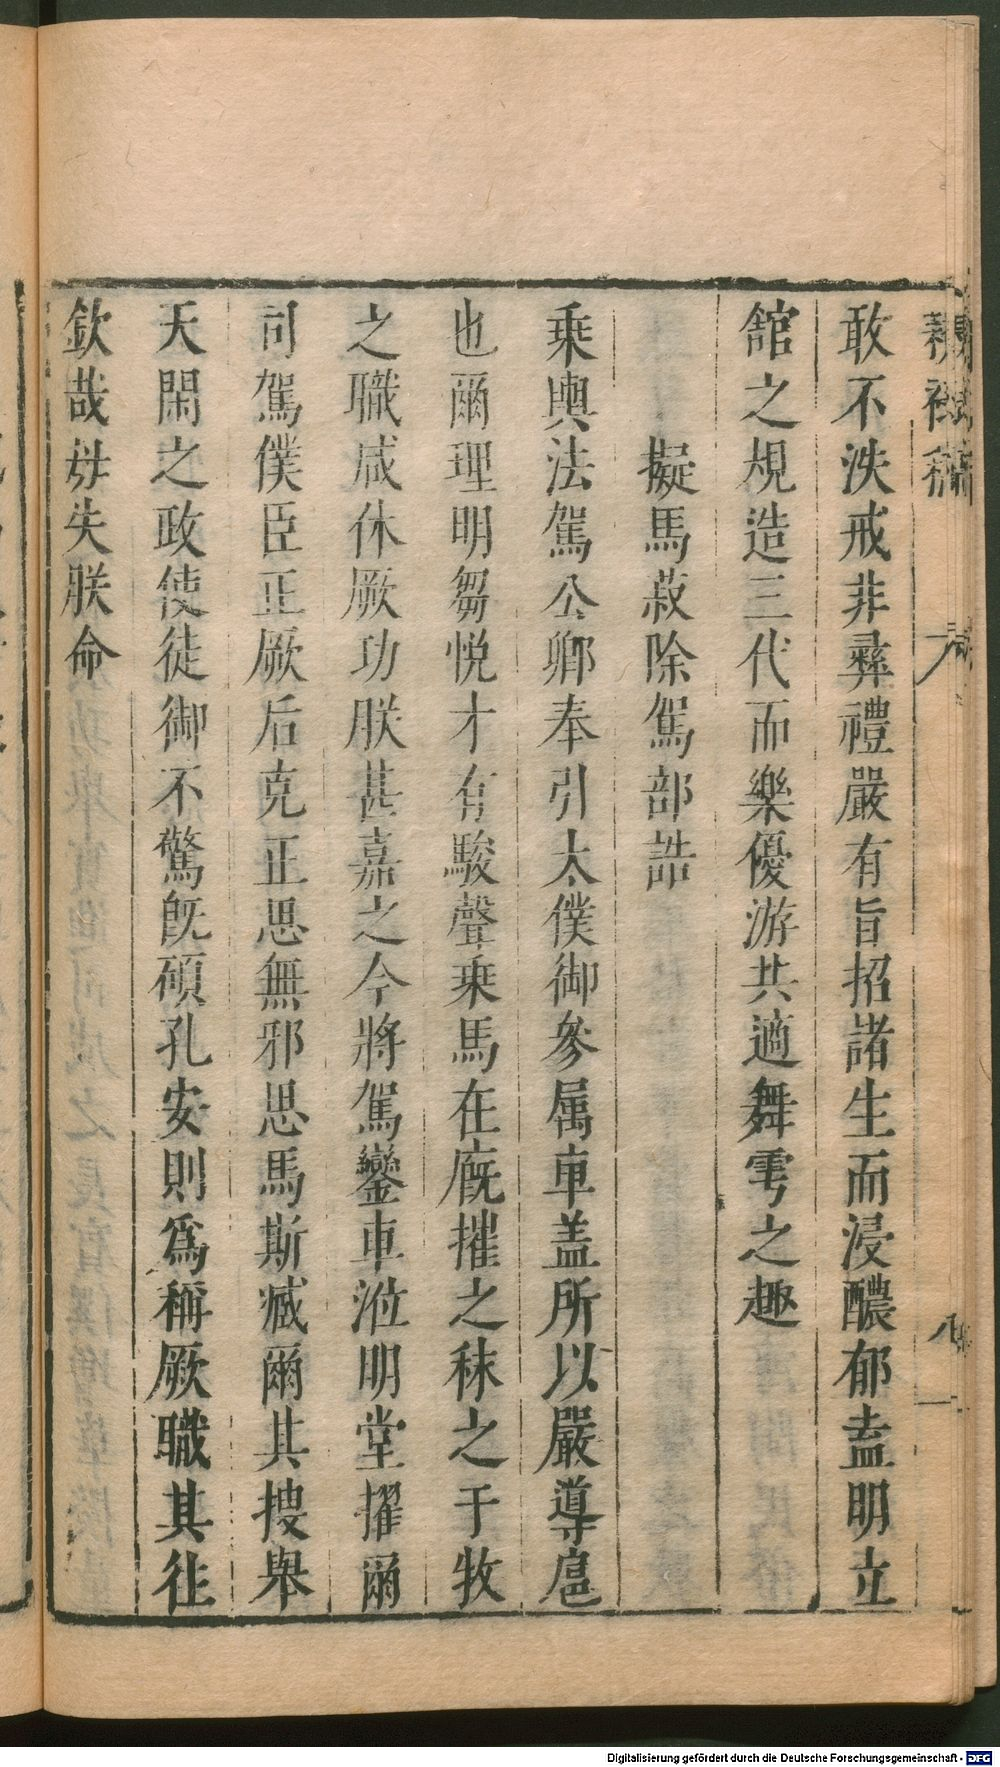 敢不泆戒非彝禮嚴有旨招諸生而浸醲郁盍明立
舘之規造三代而樂優游共適舞雩之趣
擬馬菽除駕部誥
乗輿法駕公卿奉引太僕御參属車盖所以嚴導扈
也爾理明芻悅才有駿聲乗馬在廐摧之秣之于牧
之職咸休厥功朕甚嘉之今將駕鑾車涖明堂擢爾
司駕僕臣正厥后克正思無邪思馬斯臧爾其搜舉
天閑之政使徒御不驚旣碩孔安則爲稱厥職其往
欽哉毋失朕命
Digitalisierung gefördert durch die Deutsche Forschungsgemeinschaft - DFG